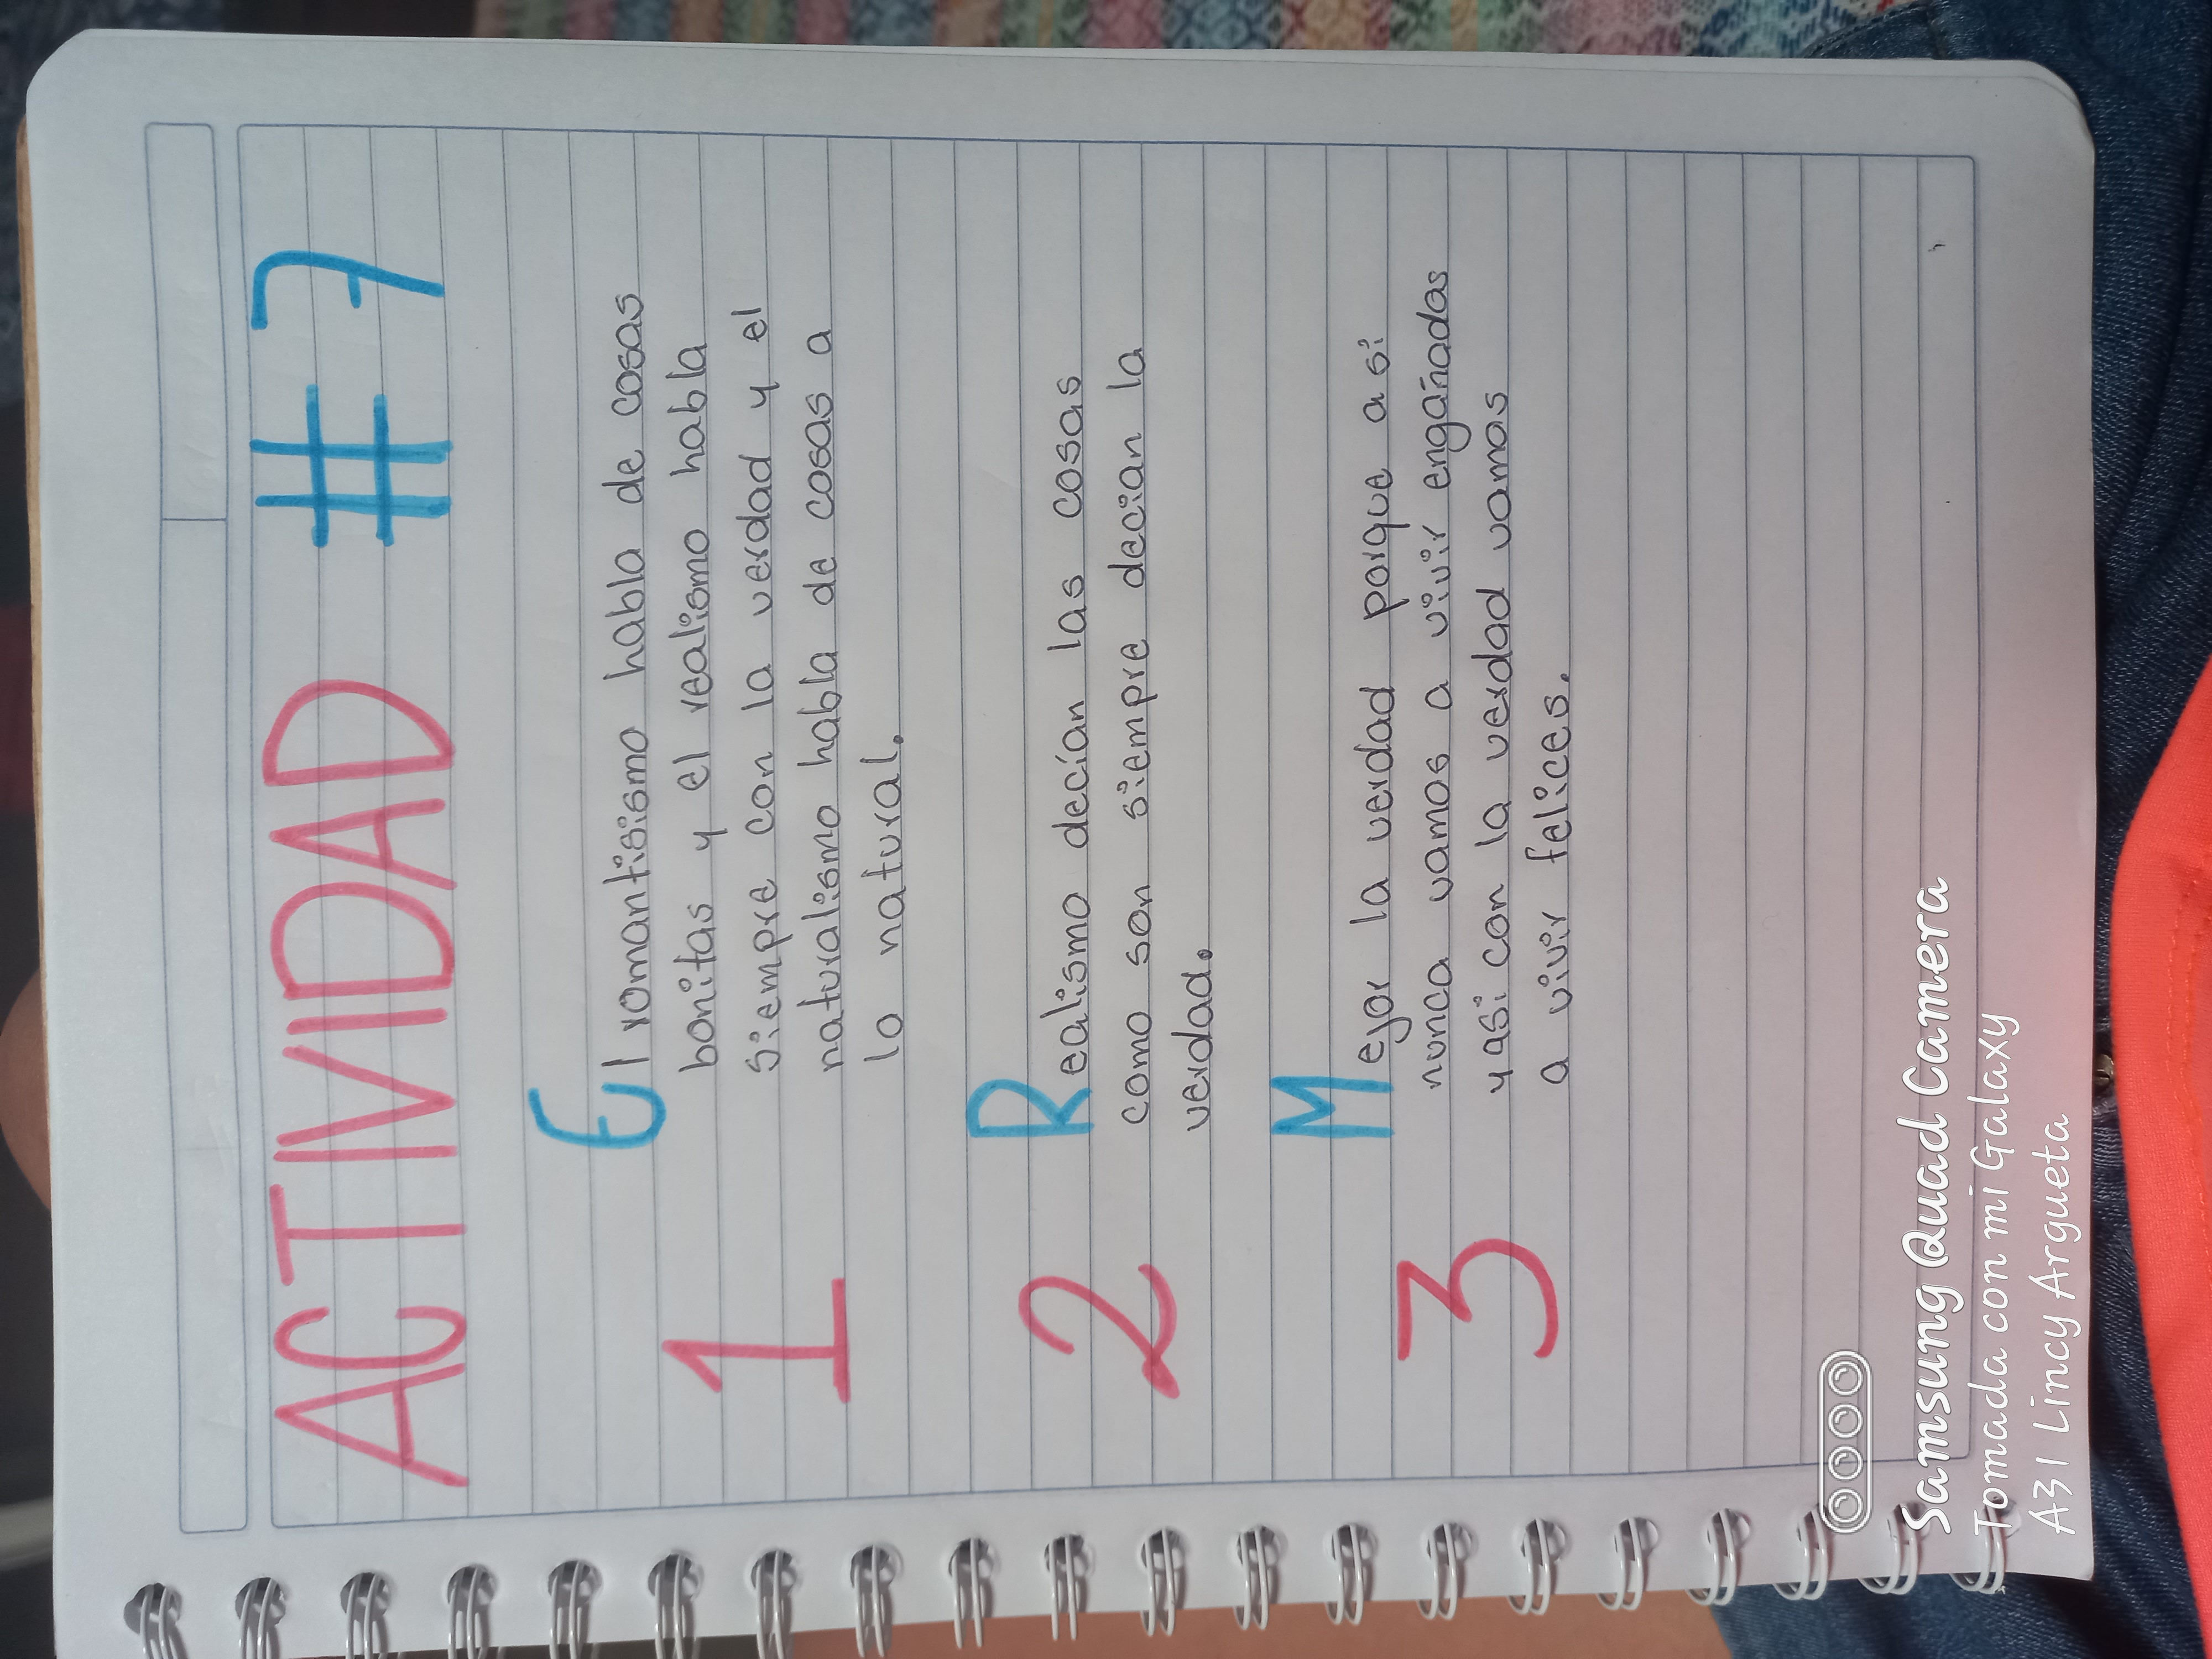 ACTIVIDAD #7
1 El romantisismo habla de cosas
bonitas y el realismo habla
siempre con la verdad y el
naturalismo habla de cosas a
lo natural.
2 Realismo decían las cosas
como son siempre decian la
verdad.
3 Mejor la verdad porque a si
nunca vamos a vivir engañadas
y asi con la verdad vamos
a vivir felices.
Samsung Quad Camera
Tomada con mi Galaxy
A31 Lincy Argueta